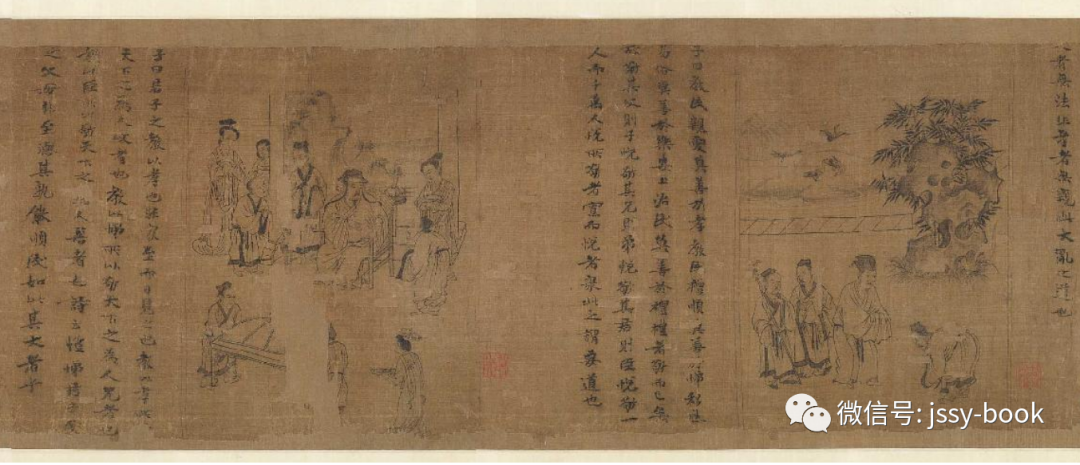 者無法非孝者無親此大亂之道也
子曰教民親愛莫善於孝教民禮順莫善於悌移風
易俗莫善於樂安上治民莫善於禮禮者敬而已矣
故敬其父則子悅敬其兄則弟悅敬其君則臣悅敬一
人而千萬人悅所敬者寡而悅者衆此之謂要道也
子曰君子之教以孝也非家至而日見之也教以孝所
天下之為人父者也教以悌所以敬天下之為人兄者也
教以臣所以敬天下之為人君者也詩云愷悌君子民
之父母非至德其孰能順民如此其大者乎
微信号: jssy-book